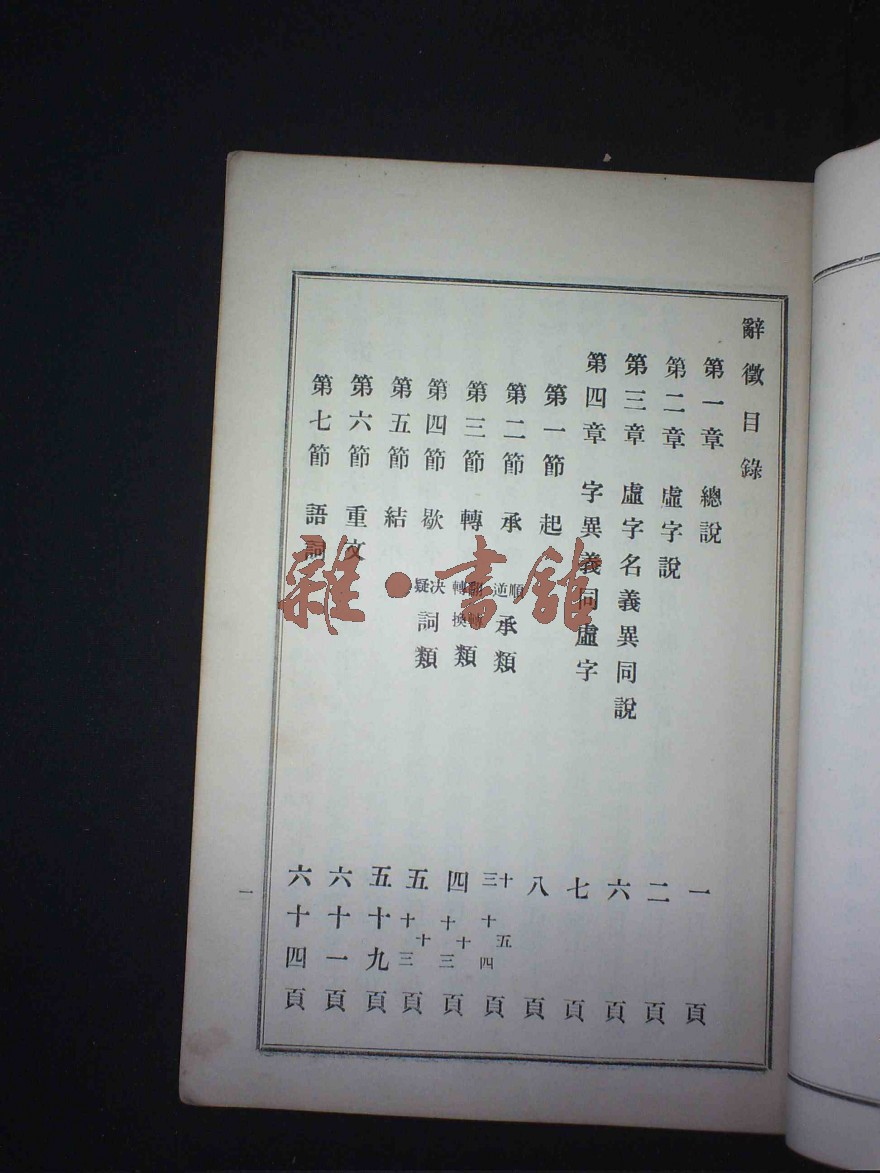 辭徵目錄
第一章 總說 一頁
第二章 虛字說 二頁
第三章 虛字名義異同說 六頁
第四章 字異義同虛字 七頁
第一節 起 八頁
第二節 承 順逆承類 十五 三十四頁
第三節 轉 翻轉換轉類 四十十三頁
第四節 歇 决疑詞類 五十十三頁
第五節 結 五十九頁
第六節 重文 六十一頁
第七節 語詞 六十四頁
一
雜·書館